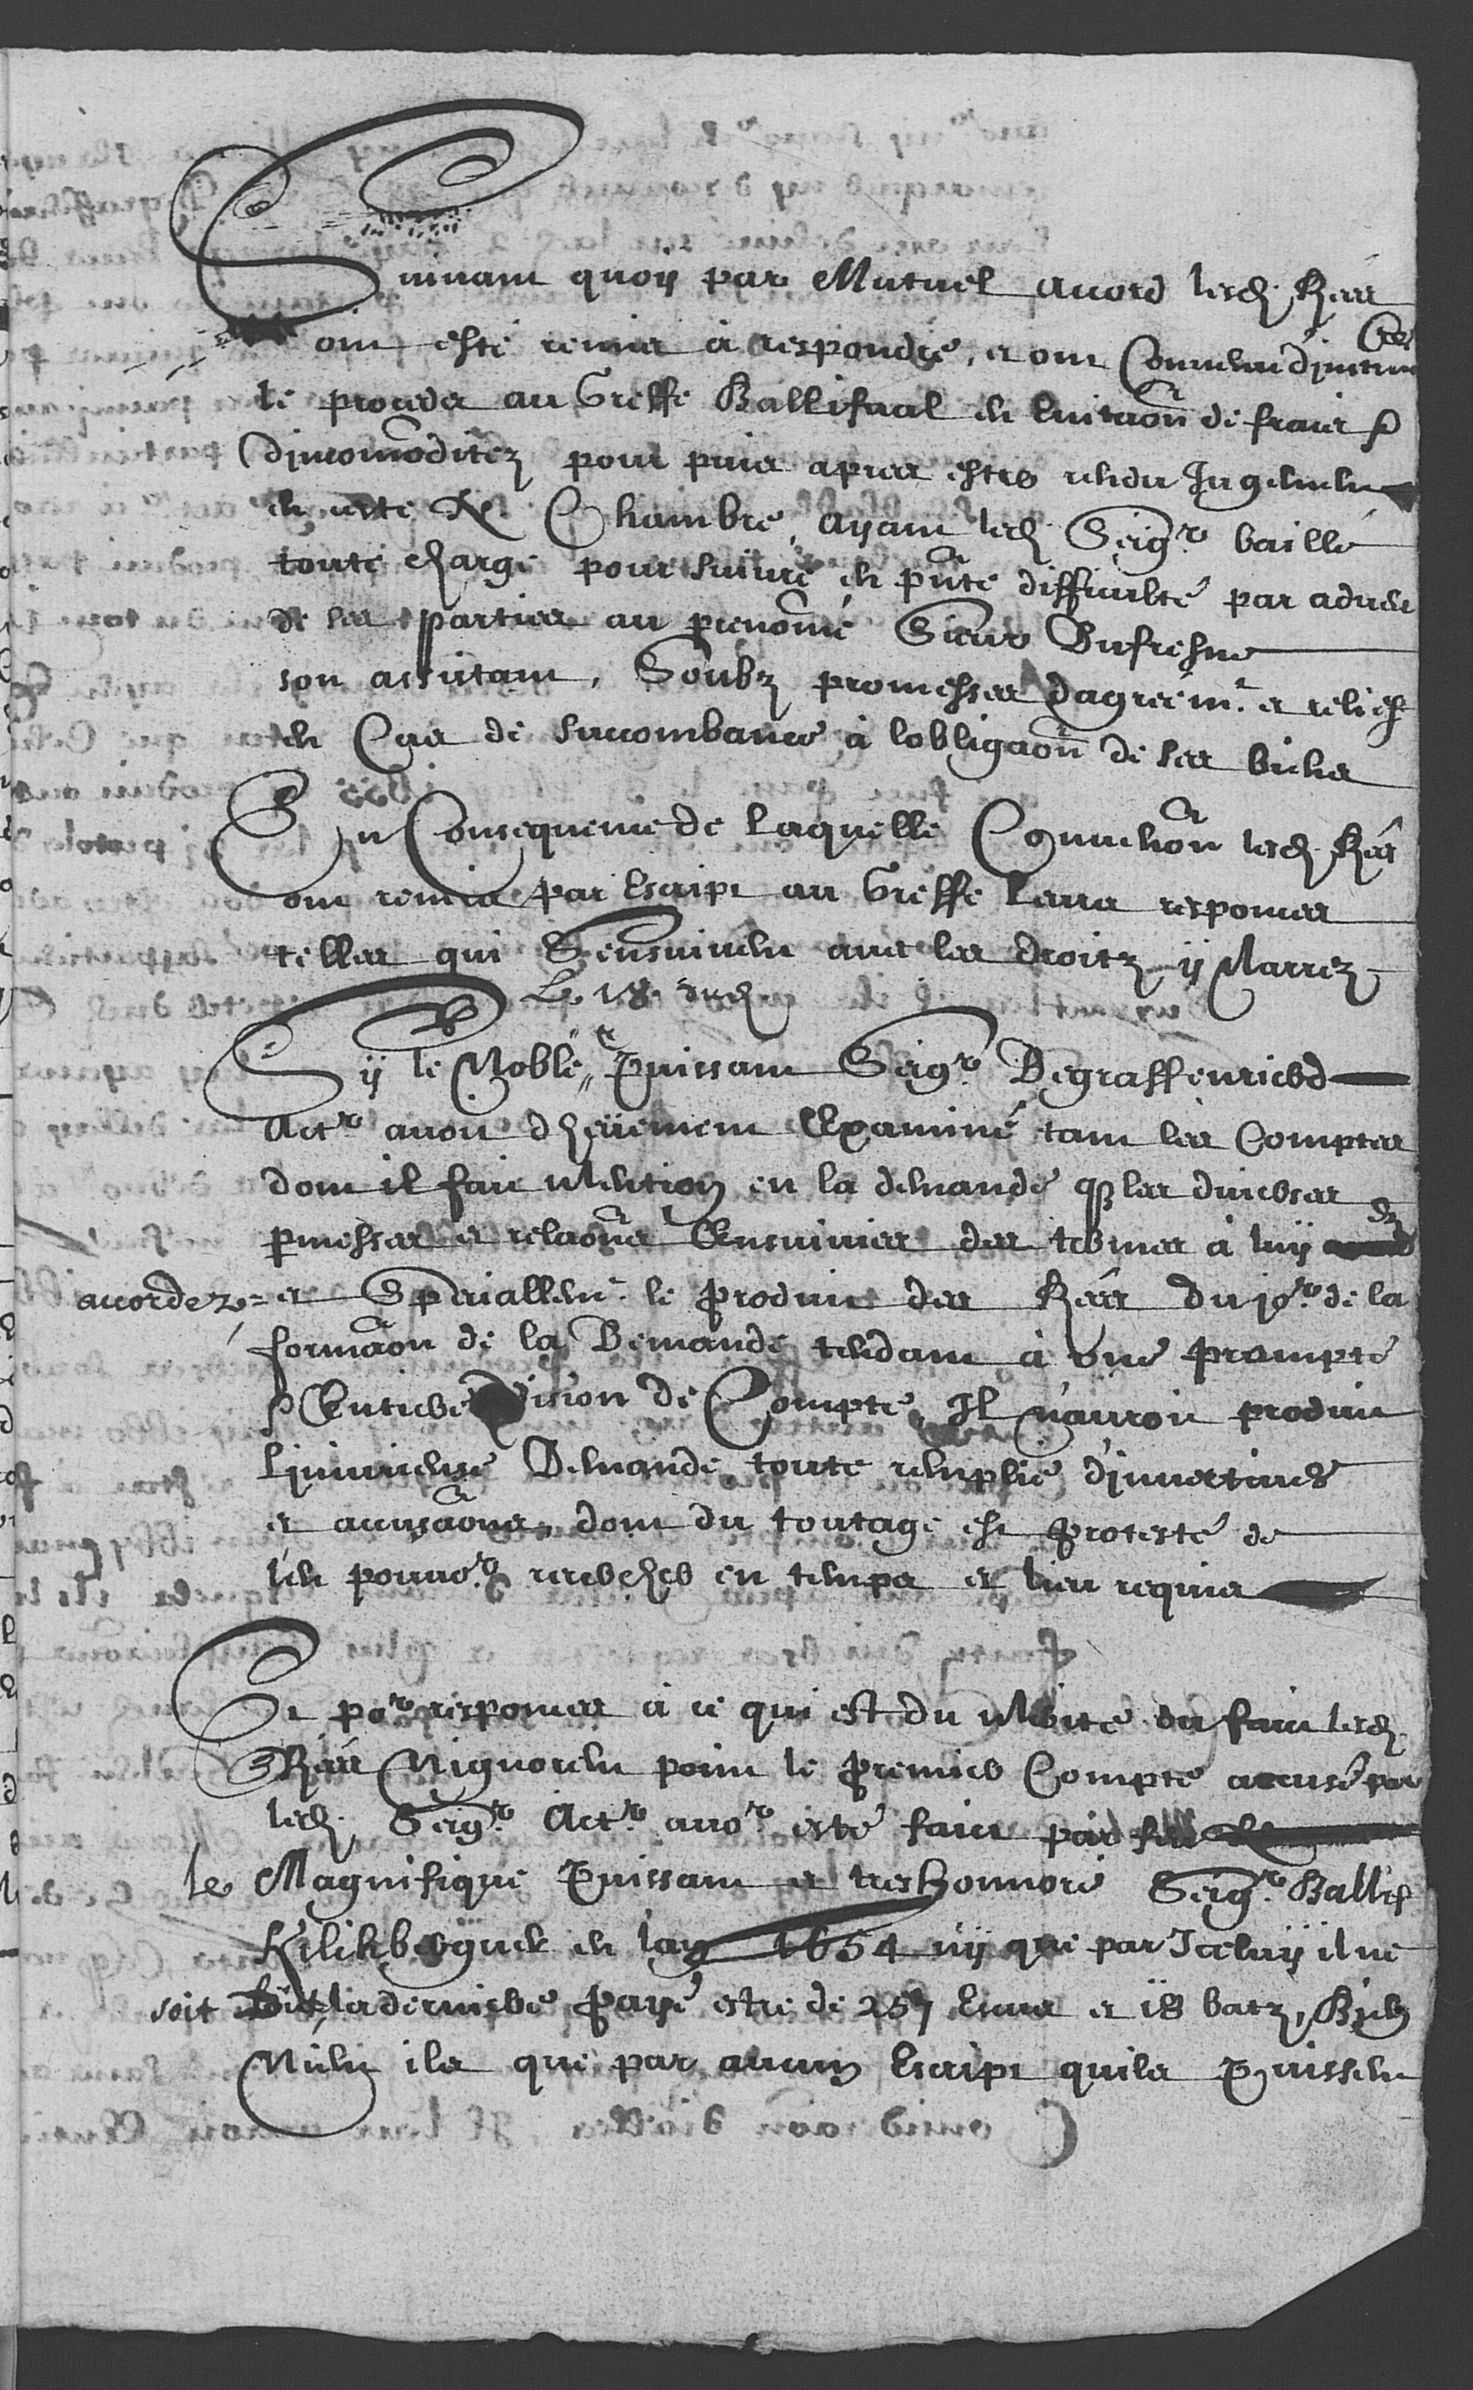 Suivant quoij par Mutuel accord lesd. Rées
ont esté remis à respondre, et ont Convenu d'jnstruire
le proceder au Greffe Ballifval en Evitaõn de frais &
djncomõditez pour puis apres estre rendu Jugement
en ceste N. Chambre, aÿant led. Seigr. baillé
toute charge pour suivre en pñte difficulté par adveu
de ses parties au prenomé Sieur Dufresne
son assistant, Soubz promesses dagreemt. et relief
en Cas de succombance à lobligaõn de ses biens
En Consequence de laquelle Convenõn lesd. Rées
ont remis par Escript au Greffe Leurs responces
telles qui Sensuivent avec les droitz ÿ Narrez
Le 18. dud.
Sÿ le Noble & Puissant Seigr. Degraffenried
Actr. avoit dheüement Examiné tant les Comptes
dont il fait Mention en sa demande q. les diverses
pmesses et relaõns Ensuivies des termes à luÿ
accordez = et Speciallemt. le produit des Rées du 10r. de la
formaõn de la Demande tendant à Une prompte
& Entiere vision de Compte, Il n'auroit produit
Linjurieuse Demande toute remplie d'jnvectives
et accusaõns, dont du toutage est protesté de
sen pouvor. recercher en temps et lieu requis
Et por. responces à ce qui est du Merite du fait lesd.
Rées Nignorent point le premier Compte accusé par
led. Seigr. Actr. avor. esté fait par feu
le Magnifique Puissant et treshonnoré Seigr. Ballif
Kilchberguer en lan 1654 nÿ que par Iceluÿ il ne
soit la derniere payé estre de 257 Escus et 18 batz, Bien
Nient ils que par aucun Escript quils Puissent